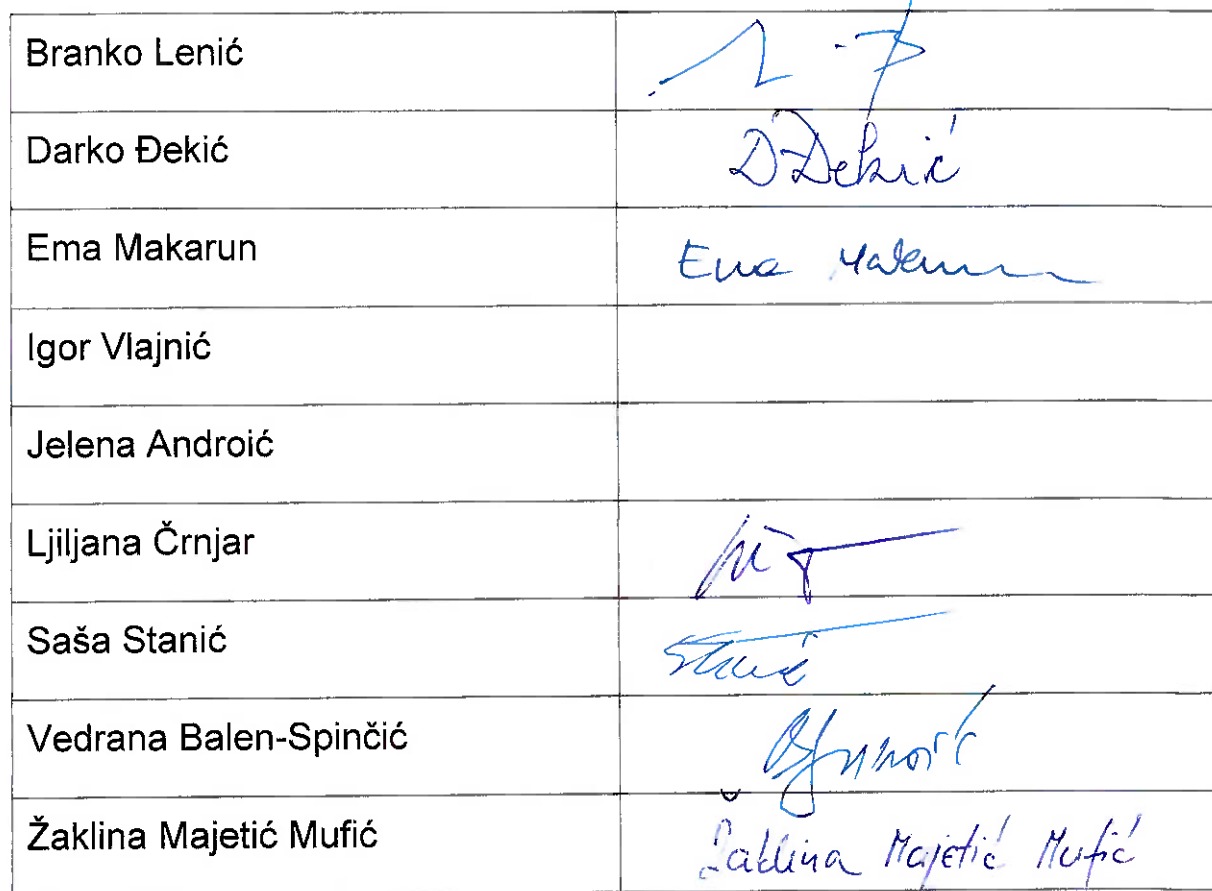 Branko Lenić
Darko Đekić D Đekić
Ema Makarun Ema Makarun
Igor Vlajnić
Jelena Androić
Ljiljana Črnjar
Saša Stanić Stanić
Vedrana Balen-Spinčić
Žaklina Majetić Mufić Žaklina Majetić Mufić